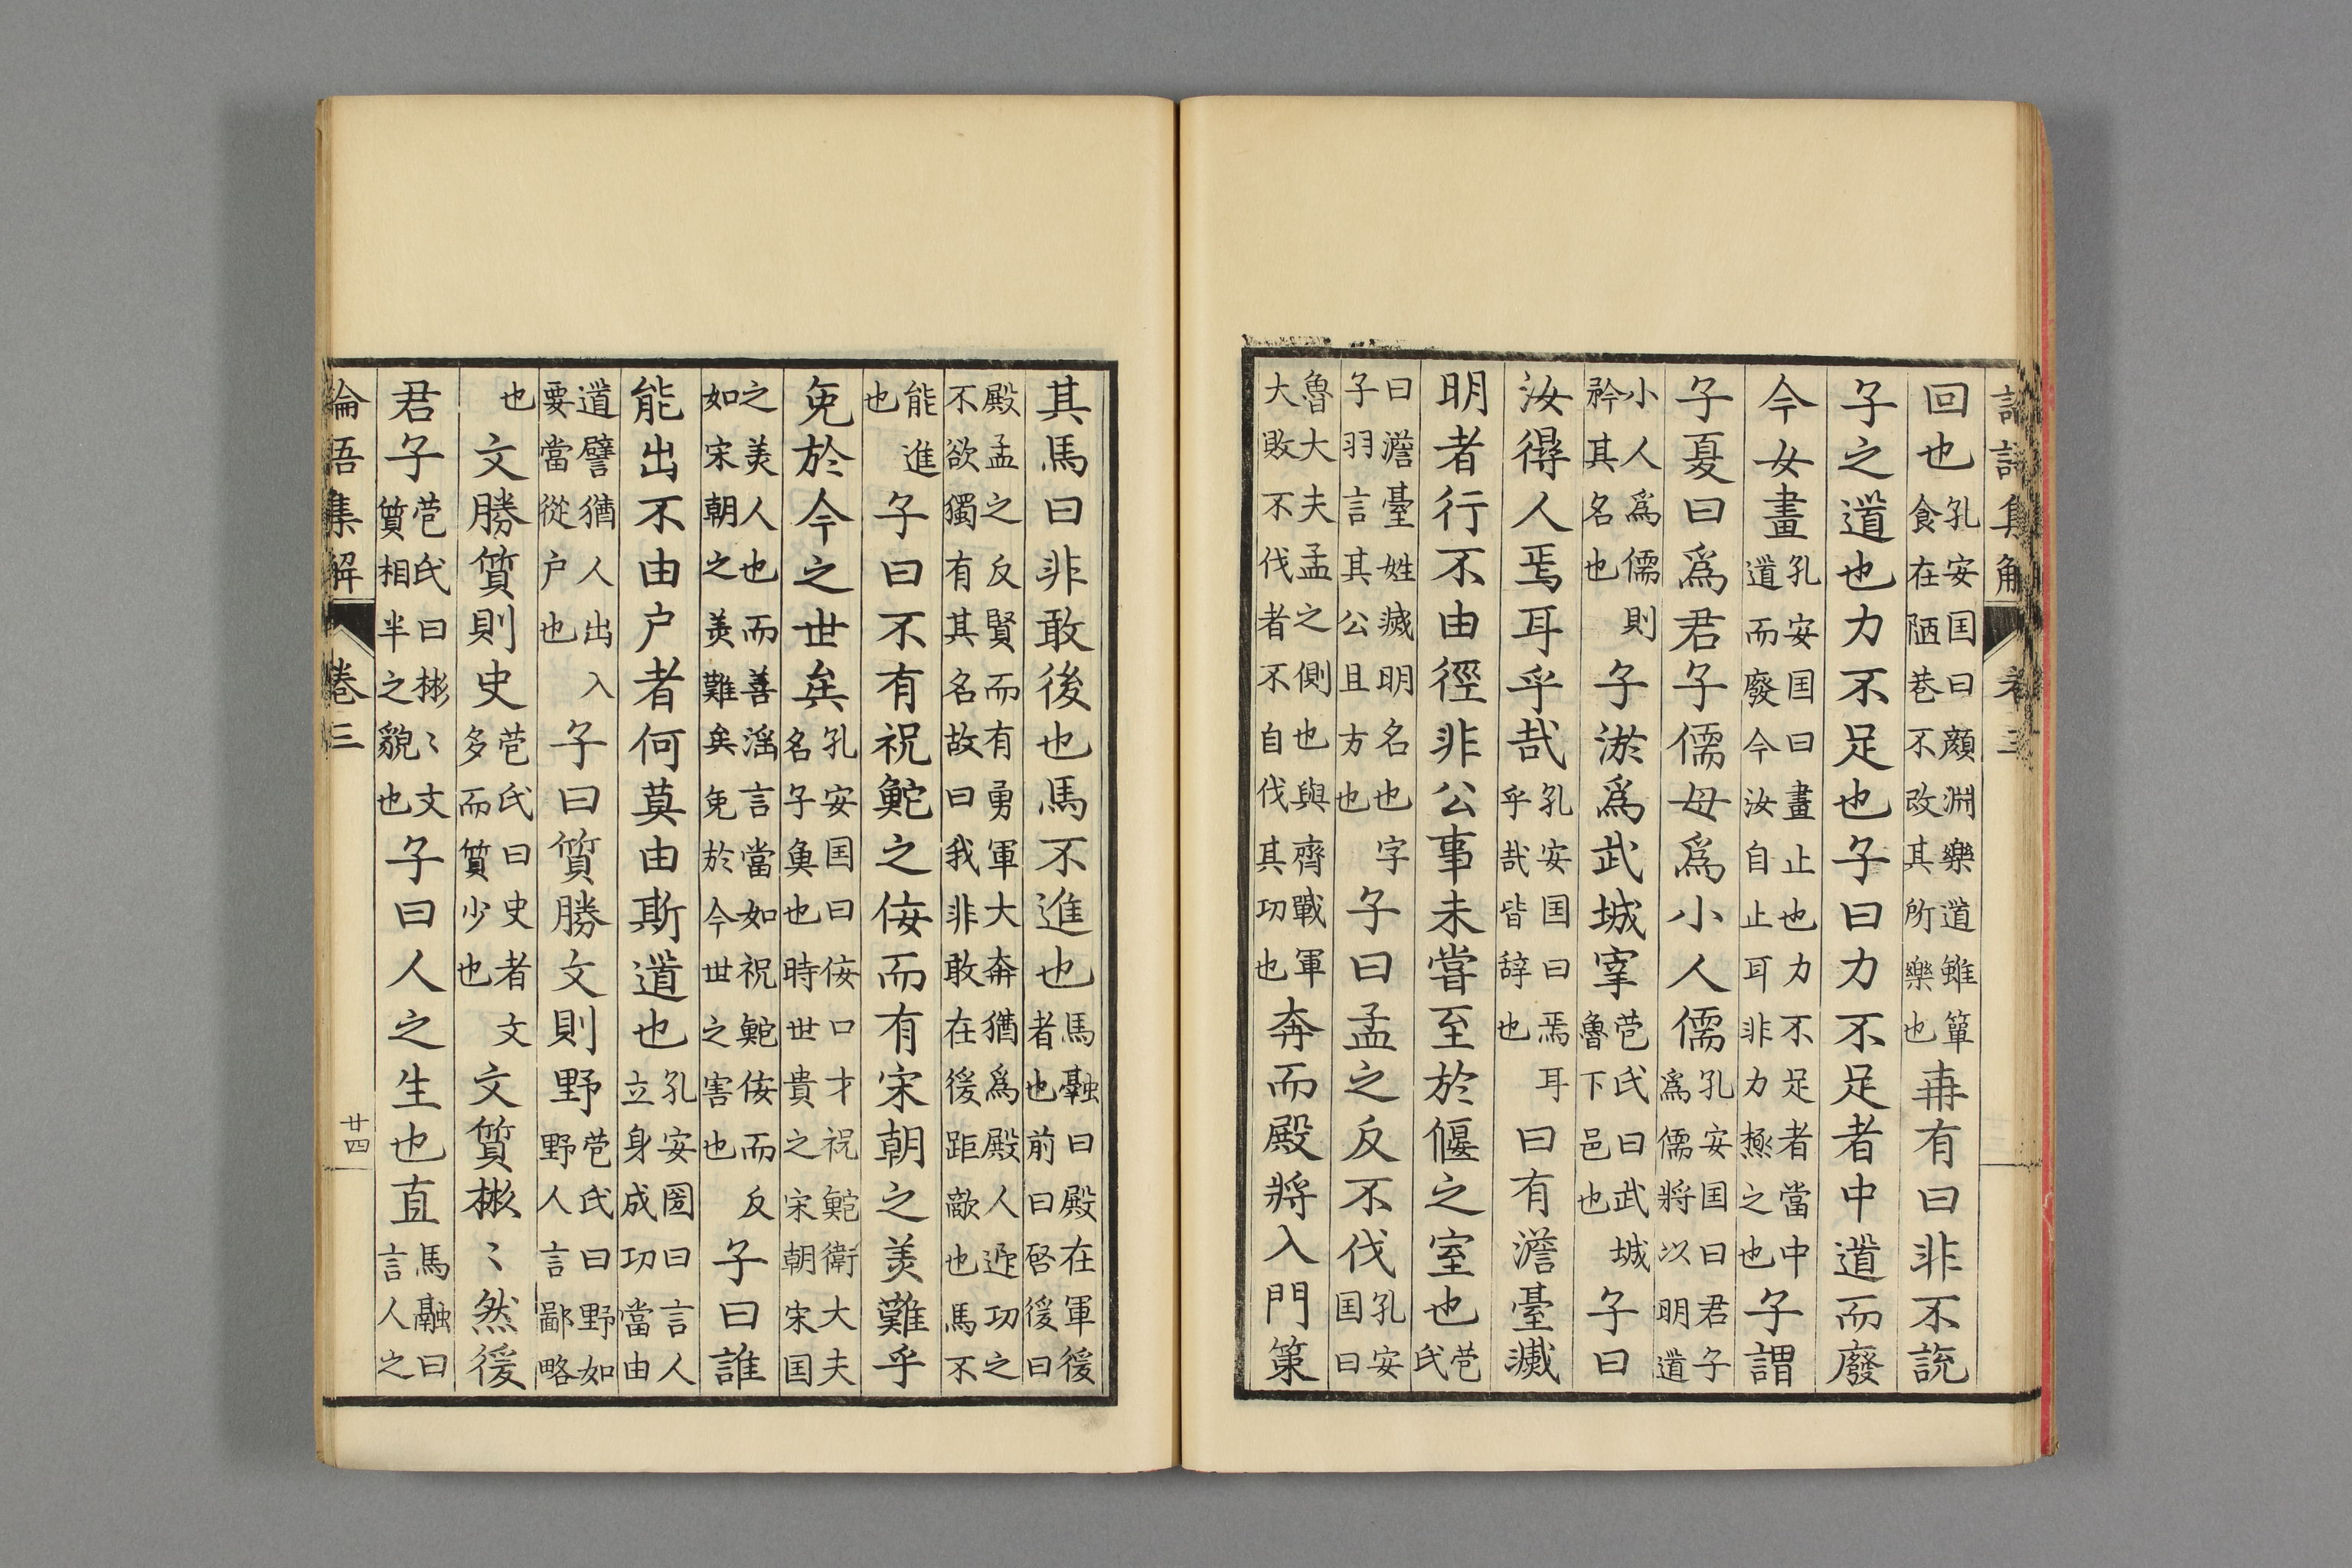 論語集解 卷三
回也孔安囯曰顔淵樂道雖簞食在陋巷不改其所樂也冉有曰非不說
子之道也力不足也子曰力不足者中道而廢
今女畫孔安囯曰畫止也力不足者當中道而廢今汝自止耳非力極之也子謂
子夏曰爲君子儒毋爲小人儒孔安囯曰君子爲儒將以明道
小人爲儒則矜其名也子游爲武城宰苞氏曰武城魯下邑也子曰
汝得人焉耳乎哉孔安囯曰焉耳乎哉皆辞也曰有澹臺滅
明者行不由徑非公事未嘗至於偃之室也苞氏
曰澹臺姓滅明名也字子羽言其公且方也子曰孟之反不伐孔安囯曰
魯大夫孟之側也與齊戰軍大敗不伐者不自伐其功也奔而殿將入門策
其馬曰非敢後也馬不進也馬融曰殿在軍後者也前曰啓後曰
殿孟之反賢而有勇軍大奔猶爲殿人迎功之不欲獨有其名故曰我非敢在後距敵也馬不
能進也子曰不有祝鮀之佞而有宋朝之美難乎
免於今之世矣孔安囯曰佞口才祝鮀衛大夫名子魚也時世貴之宋朝宋囯
之美人也而善淫言當如祝鮀佞而反如宋朝之美難矣免於今世之害也子曰誰
能出不由户者何莫由斯道也孔安圀曰言人立身成功當由
道譬猶人出入要當從户也子曰質勝文則野苞氏曰野如野人言鄙略
也文勝質則史苞氏曰史者文多而質少也文質彬〻然後
君子苞氏曰彬〻文質相半之貌也子曰人之生也直馬融曰言人之
論語集解 卷三 廿四